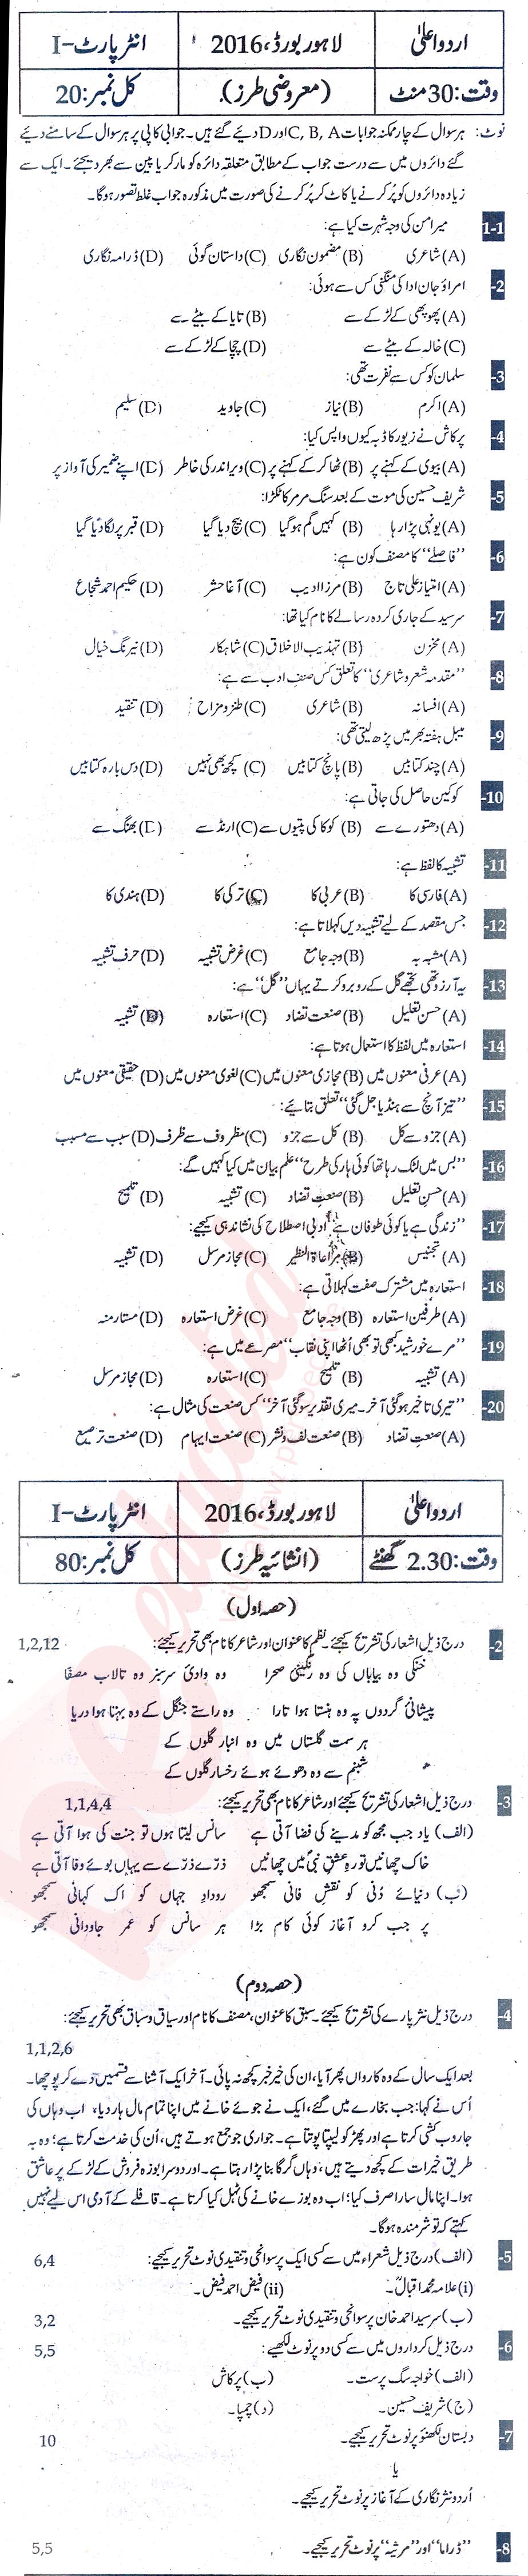 اردو اعلیٰ لاہور بورڈ، 2016 انٹر پارٹ-I
وقت: 30 منٹ (معروضی طرز) کل نمبر: 20
نوٹ: ہر سوال کے چار ممکنہ جوابات C, B, A اور D دیئے گئے ہیں۔ جوابی کاپی پر ہر سوال کے سامنے دیئے
گئے دائروں میں سے درست جواب کے مطابق متعلقہ دائرہ کو مارکر یا پین سے بھر دیجئے۔ ایک سے
زیادہ دائروں کو پُر کرنے یا کاٹ کر پُر کرنے کی صورت میں مذکورہ جواب غلط تصور ہوگا۔
1-1 میر امن کی وجہ شہرت کیا ہے:
(A) شاعری (B) مضمون نگاری (C) داستان گوئی (D) ڈرامہ نگاری
-2 امراؤ جان ادا کی منگنی کس سے ہوئی:
(A) پھوپھی کے لڑکے سے (B) تایا کے بیٹے سے
(C) خالہ کے بیٹے سے (D) چچا کے لڑکے سے
-3 سلمان کو کس سے نفرت تھی:
(A) اکرم (B) نیاز (C) جاوید (D) سلیم
-4 پرکاش نے زیور کا ڈبہ کیوں واپس کیا:
(A) بیوی کے کہنے پر (B) ٹھاکر کے کہنے پر (C) ویر اندر کی خاطر (D) اپنے ضمیر کی آواز پر
-5 شریف حسین کی موت کے بعد سنگ مرمر کا ٹکڑا:
(A) یونہی پڑا رہا (B) کہیں گم ہوگیا (C) بیچ دیا گیا (D) قبر پر لگا دیا گیا
-6 ’’فاصلے‘‘ کا مصنف کون ہے:
(A) امتیاز علی تاج (B) مرزا ادیب (C) آغا حشر (D) حکیم احمد شجاع
-7 سرسید کے جاری کردہ رسالے کا نام کیا تھا:
(A) مخزن (B) تہذیب الاخلاق (C) شاہکار (D) نیرنگ خیال
-8 ’’مقدمہ شعر و شاعری‘‘ کا تعلق کس صنف ادب سے ہے:
(A) افسانہ (B) شاعری (C) طنز و مزاح (D) تنقید
-9 میبل ہفتہ بھر میں پڑھ لیتی تھی:
(A) چند کتابیں (B) پانچ کتابیں (C) کچھ بھی نہیں (D) دس بارہ کتابیں
-10 کوکین حاصل کی جاتی ہے:
(A) دھتورے سے (B) کوکا کی پتیوں سے (C) ارنڈ سے (D) بھنگ سے
-11 تشبیہ کا لفظ ہے:
(A) فارسی کا (B) عربی کا (C) ترکی کا (D) ہندی کا
-12 جس مقصد کے لیے تشبیہ دیں کہلاتا ہے:
(A) مشبہ بہ (B) وجہ جامع (C) غرض تشبیہ (D) حرف تشبیہ
-13 یہ آرزو تھی تجھے گل کے روبرو کرتے یہاں ’’گل‘‘ ہے:
(A) حسن تعلیل (B) صنعت تضاد (C) استعارہ (D) تشبیہ
-14 استعارہ میں لفظ کا استعمال ہوتا ہے:
(A) عرفی معنوں میں (B) مجازی معنوں میں (C) لغوی معنوں میں (D) حقیقی معنوں میں
-15 ’’تیز آنچ سے ہنڈیا جل گئی‘‘ تعلق بتائیے:
(A) جزو سے کل (B) کل سے جزو (C) مظروف سے ظرف (D) سبب سے مسبب
-16 ’’بس میں لٹک رہا تھا کوئی ہار کی طرح‘‘ علم بیان میں کیا کہیں گے:
(A) حسن تعلیل (B) صنعت تضاد (C) تشبیہ (D) تلمیح
-17 ’’زندگی ہے یا کوئی طوفان ہے‘‘ ادبی اصطلاح کی نشاندہی کیجیے:
(A) تجنیس (B) مراعاۃ النظیر (C) مجاز مرسل (D) تشبیہ
-18 استعارہ میں مشترک صفت کہلاتی ہے:
(A) طرفین استعارہ (B) وجہ جامع (C) غرض استعارہ (D) مستعار منہ
-19 ’’مرے خورشید کبھی تو بھی اُٹھا اپنی نقاب‘‘ مصرعے میں ہے:
(A) تشبیہ (B) تلمیح (C) استعارہ (D) مجاز مرسل
-20 ’’تیری تاخیر ہوگئی آخر۔ میری تقدیر سوگئی آخر‘‘ کس صنعت کی مثال ہے:
(A) صنعت تضاد (B) صنعت لف و نشر (C) صنعت ایہام (D) صنعت ترصیع
اردو اعلیٰ لاہور بورڈ، 2016 انٹر پارٹ-I
وقت: 2.30 گھنٹے (انشائیہ طرز) کل نمبر: 80
(حصہ اول)
-2 درج ذیل اشعار کی تشریح کیجئے۔ نظم کا عنوان اور شاعر کا نام بھی تحریر کیجئے: 1,2,12
خنکی وہ بیاباں کی وہ رنگینئی صحرا وہ وادیٔ سرسبز وہ تالاب مصفّا
پیشانیٔ گردوں پہ وہ ہنستا ہوا تارا وہ راستے جنگل کے وہ بہتا ہوا دریا
ہر سمت گلستاں میں وہ انبار گلوں کے
شبنم سے وہ دھوئے ہوئے رخسار گلوں کے
-3 درج ذیل اشعار کی تشریح کیجئے اور شاعر کا نام بھی تحریر کیجئے: 1,1,4,4
(الف) یاد جب مجھ کو مدینے کی فضا آتی ہے سانس لیتا ہوں تو جنت کی ہوا آتی ہے
خاک چھانیں تو رہِ عشقِ نبیؐ میں چھانیں ذرّے ذرّے سے یہاں بوئے وفا آتی ہے
(ب) دنیائے دنی کو نقشِ فانی سمجھو رودادِ جہاں کو اک کہانی سمجھو
پر جب کرو آغاز کوئی کام بڑا ہر سانس کو عمرِ جاودانی سمجھو
(حصہ دوم)
-4 درج ذیل نثر پارے کی تشریح کیجئے۔ سبق کا عنوان، مصنف کا نام اور سیاق و سباق بھی تحریر کیجئے:
1,1,2,6
بعد ایک سال کے وہ کارواں پھر آیا، ان کی خیر خبر کچھ نہ پائی۔ آخر ایک آشنا سے قسمیں دے کر پوچھا۔
اُس نے کہا: جب بخارے میں گئے، ایک نے جوئے خانے میں اپنا تمام مال ہار دیا، اب وہاں کی
جاروب کشی کرتا ہے اور پھڑ کو لیپتا پوتتا ہے۔ جواری جو جمع ہوتے ہیں، اُن کی خدمت کرتا ہے؛ وہ بہ
طریق خیرات کے کچھ دیتے ہیں، وہاں گرگا بنا پڑا رہتا ہے۔ اور دوسرا بوزہ فروش کے لڑکے پر عاشق
ہوا۔ اپنا مال سارا صرف کیا؛ اب وہ بوزے خانے کی ٹہل کیا کرتا ہے۔ قافلے کے آدمی اس لیے نہیں
کہتے کہ تو شرمندہ ہوگا۔
-5 (الف) درج ذیل شعراء میں سے کسی ایک پر سوانحی و تنقیدی نوٹ تحریر کیجئے: 6,4
(i) علامہ محمد اقبالؒ۔ (ii) فیض احمد فیض۔
(ب) سرسید احمد خان پر سوانحی و تنقیدی نوٹ تحریر کیجیے۔ 3,2
-6 درج ذیل کرداروں میں سے کسی دو پر نوٹ لکھیے: 5,5
(الف) خواجہ سگ پرست۔ (ب) پرکاش
(ج) شریف حسین۔ (د) چمپا۔
-7 دبستان لکھنؤ پر نوٹ تحریر کیجیے۔ 10
یا
اُردو نثر نگاری کے آغاز پر نوٹ تحریر کیجیے۔
-8 ’’ڈراما‘‘ اور ’’مرثیہ‘‘ پر نوٹ تحریر کیجیے۔ 5,5